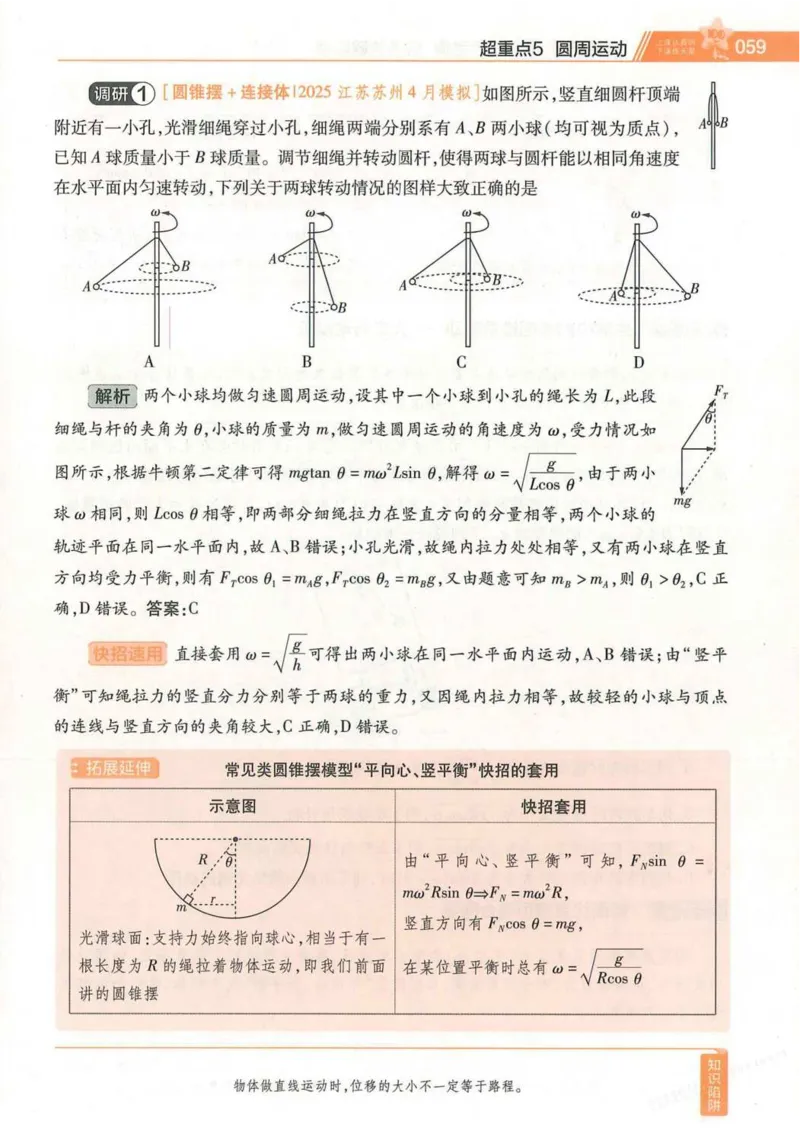 超重点5 圆周运动
059
调研1 [圆锥摆+连接体|2025江苏苏州4月模拟]如图所示,竖直细圆杆顶端
附近有一小孔,光滑细绳穿过小孔,细绳两端分别系有A、B两小球(均可视为质点),
已知A球质量小于B球质量。调节细绳并转动圆杆,使得两球与圆杆能以相同角速度
在水平面内匀速转动,下列关于两球转动情况的图样大致正确的是
A B
ω ω ω ω
A B A B A B A B
A B C D
解析 两个小球均做匀速圆周运动,设其中一个小球到小孔的绳长为L,此段
细绳与杆的夹角为θ,小球的质量为m,做匀速圆周运动的角速度为ω,受力情况如
图所示,根据牛顿第二定律可得mgtan θ=mω²Lsin θ,解得ω=√(g/(Lcos θ)),由于两小
球ω相同,则Lcos θ相等,即两部分细绳拉力在竖直方向的分量相等,两个小球的
轨迹平面在同一水平面内,故A、B错误;小孔光滑,故绳内拉力处处相等,又有两小球在竖直
方向均受力平衡,则有F_Tcos θ₁=m_Ag,F_Tcos θ₂=m_Bg,又由题意可知m_B>m_A,则θ₁>θ₂,C正
确,D错误。答案:C
F_T
θ
mg
快招速用 直接套用ω=√(g/h)可得出两小球在同一水平面内运动,A、B错误;由“竖平
衡”可知绳拉力的竖直分力分别等于两球的重力,又因绳内拉力相等,故较轻的小球与顶点
的连线与竖直方向的夹角较大,C正确,D错误。
拓展延伸 常见类圆锥摆模型“平向心、竖平衡”快招的套用
示意图
快招套用
R θ
m r
光滑球面:支持力始终指向球心,相当于有一
根长度为R的绳拉着物体运动,即我们前面
讲的圆锥摆
由“平向心、竖平衡”可知,F_Nsin θ=
mω²Rsin θ⇒F_N=mω²R,
竖直方向有F_Ncos θ=mg,
在某位置平衡时总有ω=√(g/(Rcos θ))
物体做直线运动时,位移的大小不一定等于路程。
知识陷阱